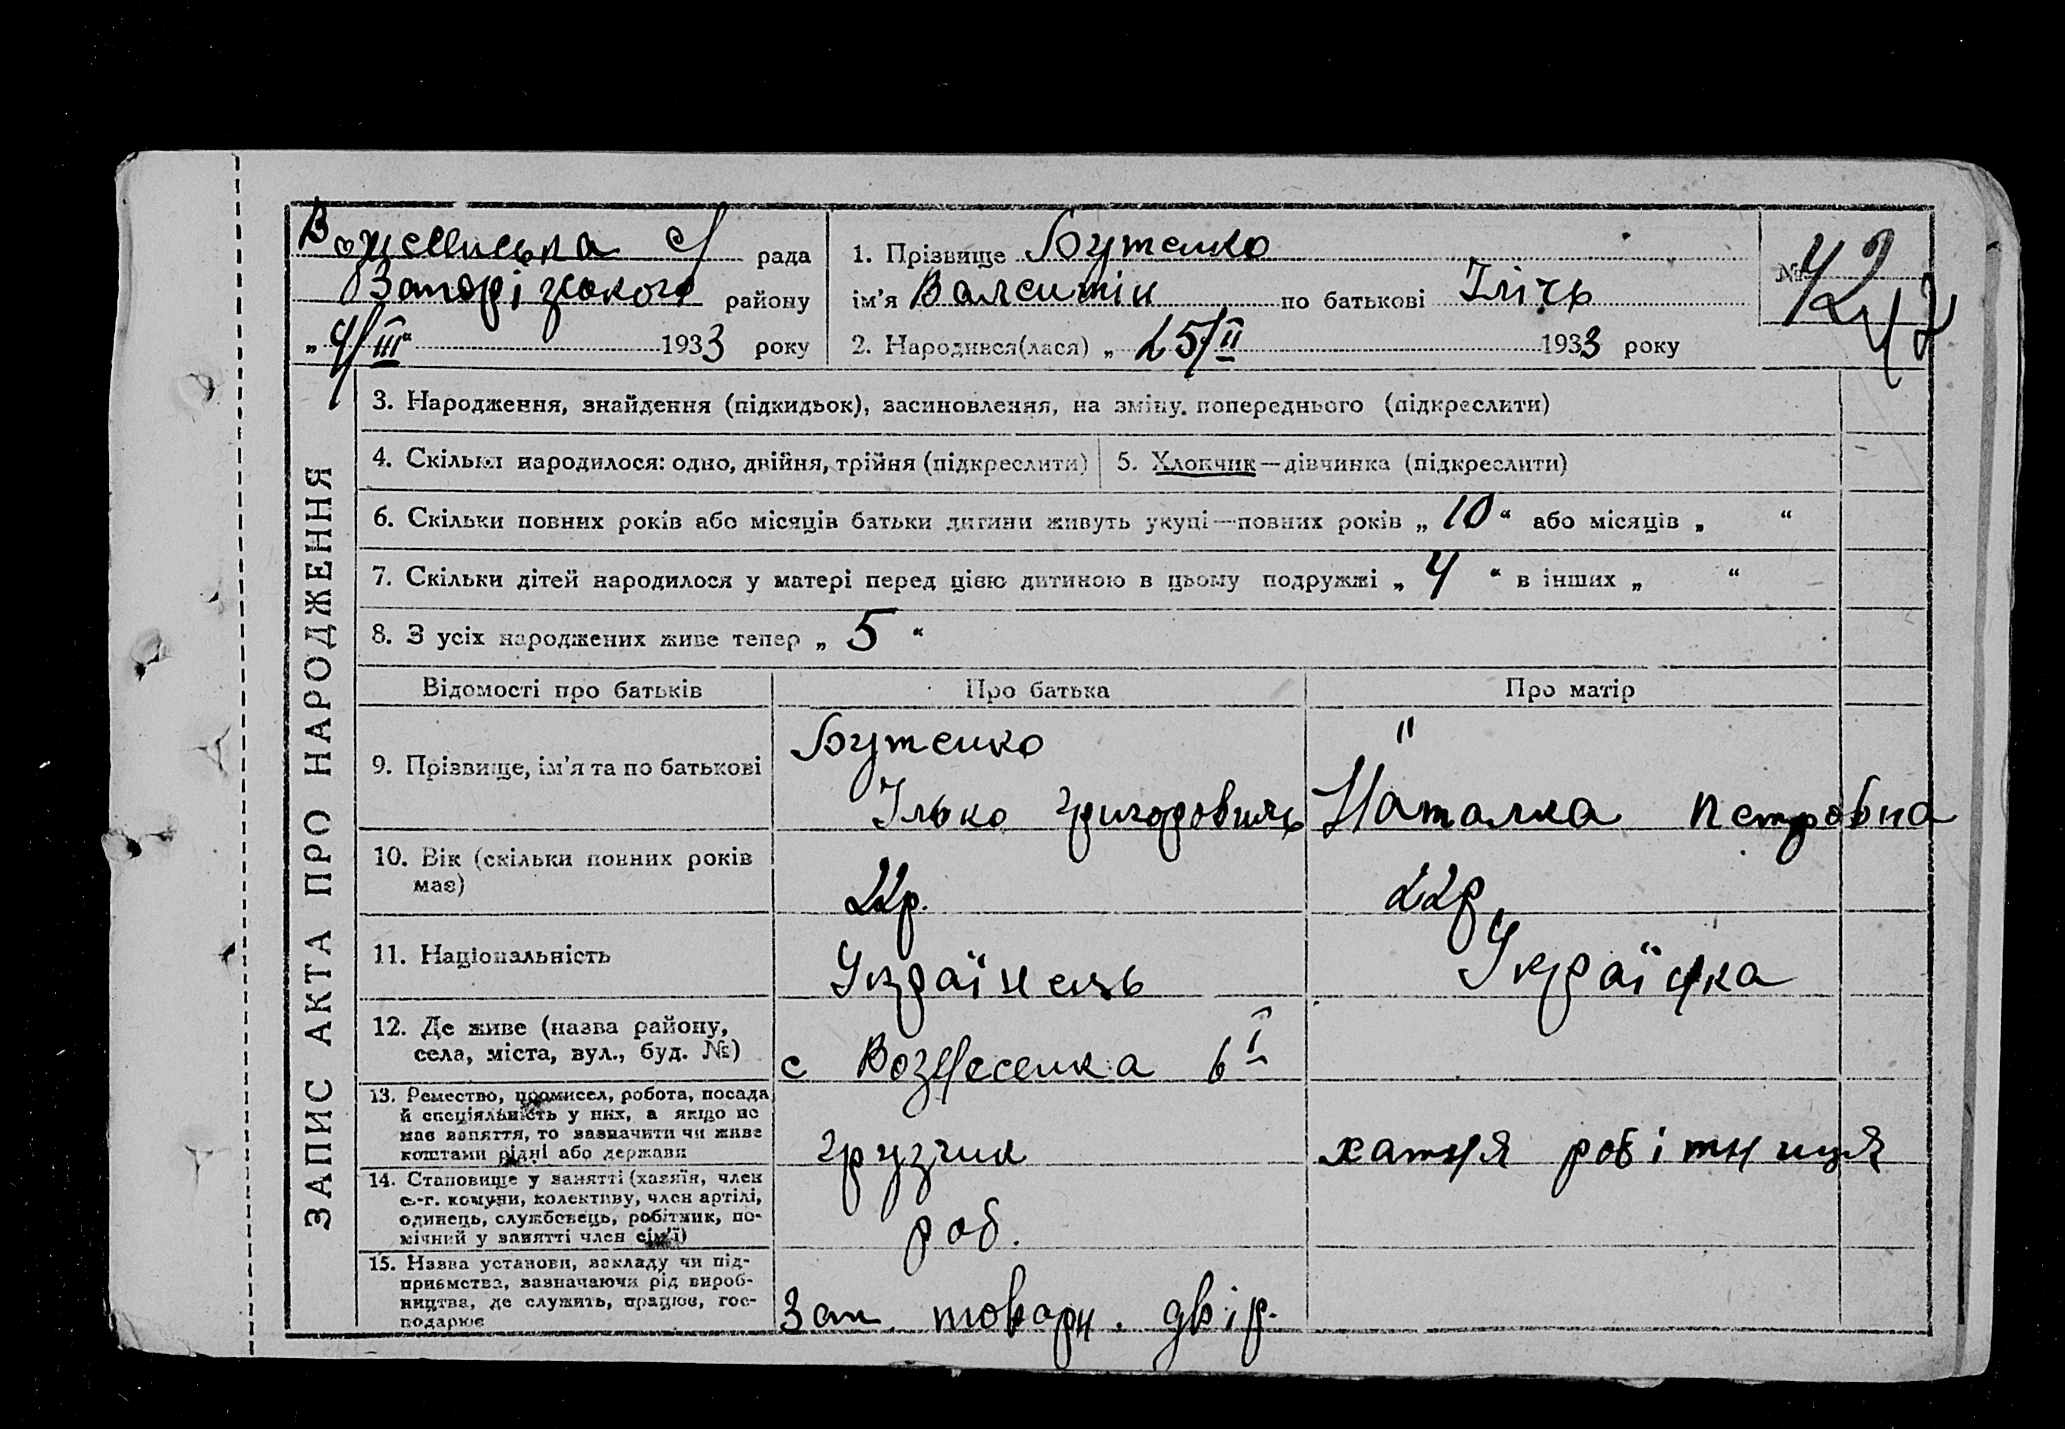 Вознесенська с/ рада
Запорізького району
„ 4/III “ 1933 року
1. Прізвище Бутенко
ім’я Валентін по батькові Ілічь
2. Народився(лася) „ 25/II 1933 року
№ 42
47
ЗАПИС АКТА ПРО НАРОДЖЕННЯ
3. Народження, знайдення (підкидьок), засиновлення, на зміну попереднього (підкреслити)
4. Скільки народилося: одно, двійня, трійня (підкреслити)
5. Хлопчик—дівчинка (підкреслити)
6. Скільки повних років або місяців батьки дитини живуть укупі—повних років „ 10 “ або місяців „ “
7. Скільки дітей народилося у матері перед цією дитиною в цьому подружжі „ 4 “ в інших „ “
8. З усіх народжених живе тепер „ 5 “
Відомості про батьків Про батька Про матір
9. Прізвище, ім’я та по батькові
Бутенко
Ілько Григоровичь
"
Наталка Петровна
10. Вік (скільки повних років
має)
22р.
22р.
11. Національність
Українець
Українка
12. Де живе (назва району,
села, міста, вул., буд. №)
с Вознесенка 6 I
13. Ремество, промисел, робота, посада
й спеціяльність у них, а якщо не
має заняття, то зазначити чи живе
коштами рідні або держави
грузчик
хатня робітниця
14. Становище у занятті (хазяїн, член
с.-г. комуни, колективу, член артілі,
одинець, службовець, робітник, по-
мічний у занятті член сім’ї)
роб.
15. Назва установи, закладу чи під-
приємства, зазначаючи рід вироб-
ництва, де служить, працює, гос-
подарює
Зап. товарн. двір.